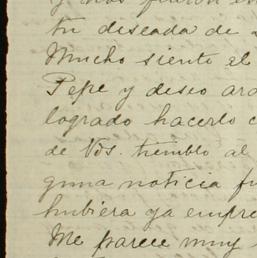 y nos
tu deseada de
Mucho siento el
Pepe y deseo
logrado hacerlo
de Vds. tiemblo al
guna noticia
hubiera ya
Me parece muy